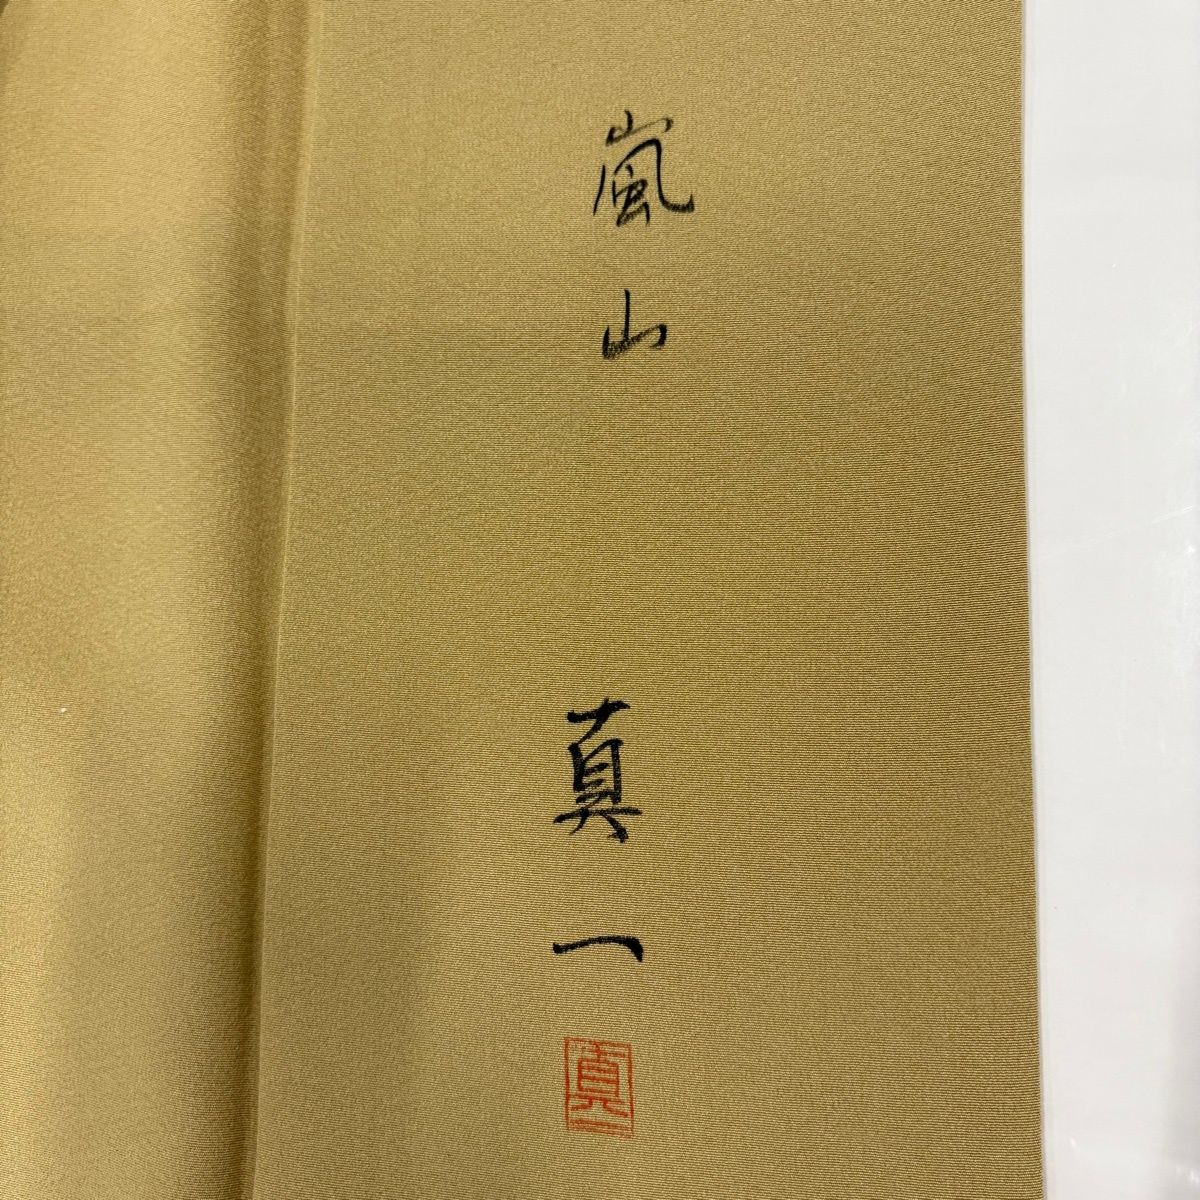 嵐山
真一
真一